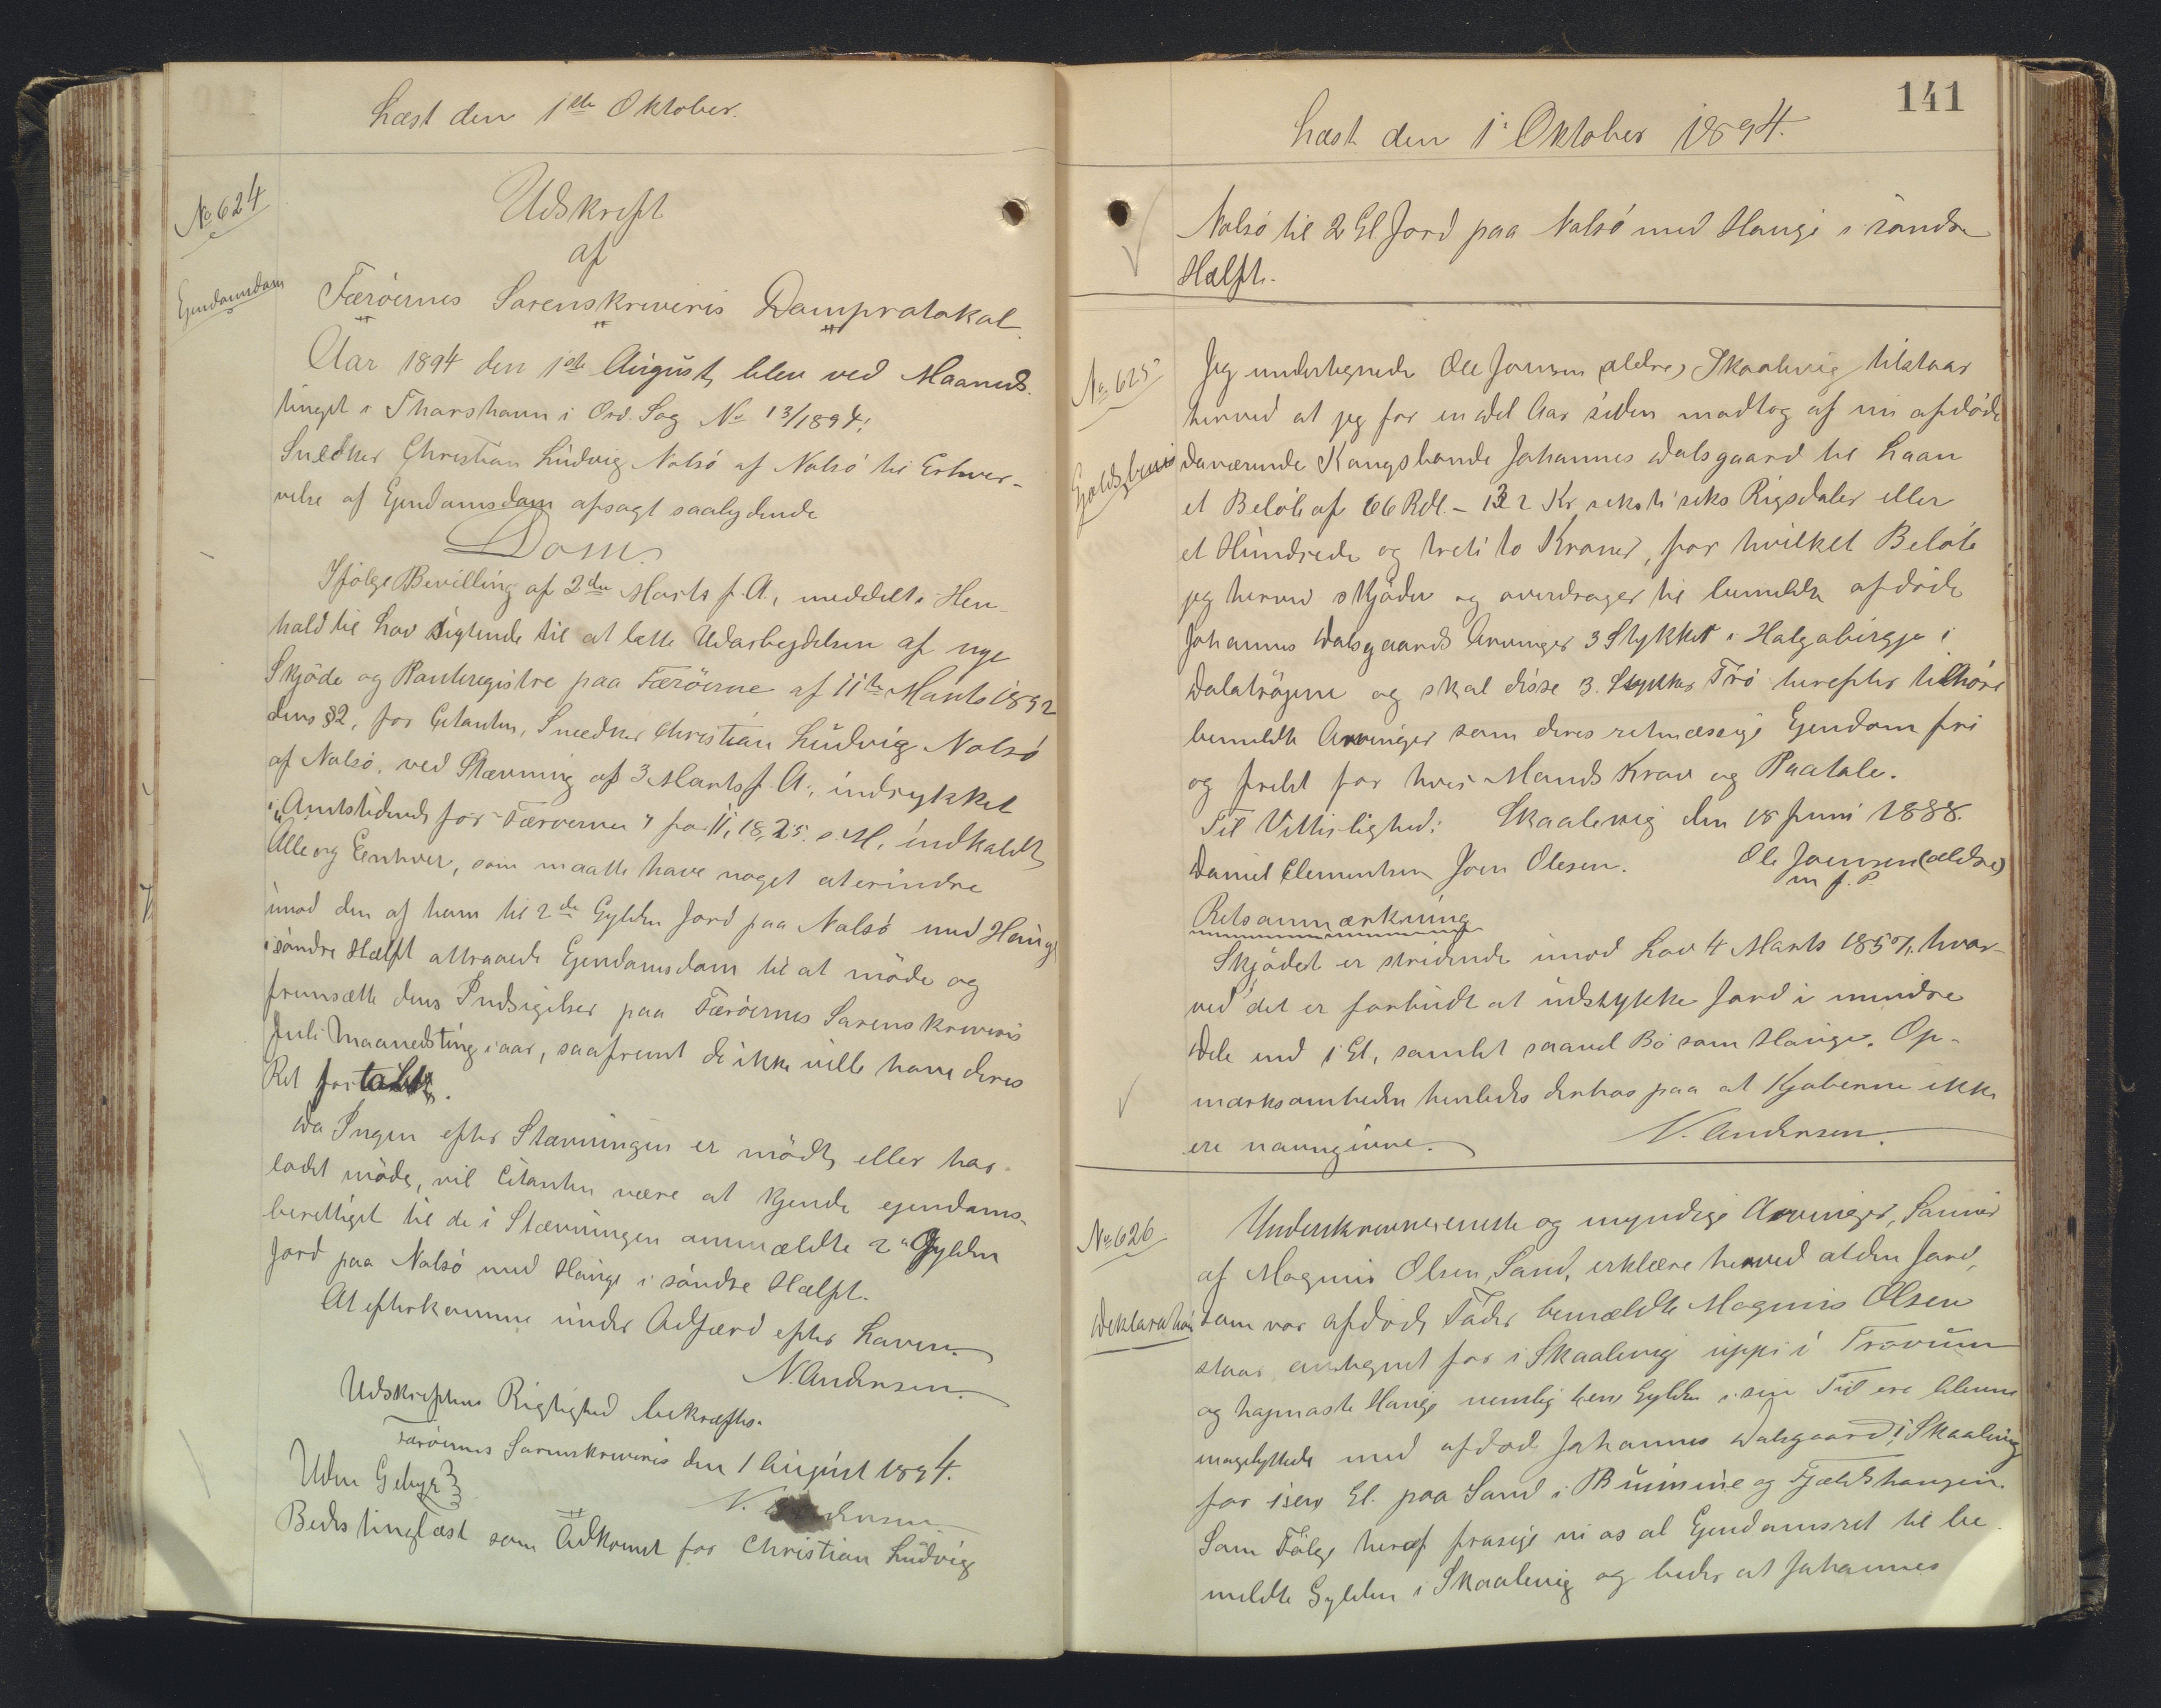 Læst den 1ste Oktober.
No 624
Ejendomsdom
Udskrift
af
Færöernes Sorenskriveris Domprotokol.
Aar 1894 den 1ste August, blev ved Maaneds-
tinget i Thorshavn i Ord. Sag No 13/1894:
Snedker Christian Ludvig Nolsö af Nolsö til Erhver-
velse af Ejendomsdom afsagt saalydende
Dom.
Ifölge Bevilling af 2den Marts f. A., meddelt i Hen-
hold til Lov sigtende til at lette Udarbejdelsen af nye
Skjöde og Panteregistre paa Færöerne af 11te Marts 1892
dens §2, for Citanten, Snedker Christian Ludvig Nolsö
af Nolsö, ved Stævning af 3 Marts f. A., indrykket
i "Amtstidende for Færöerne" for 11, 18, 25. s. M., indkaldt
Alle og Eenhver, som maatte have noget at erindre
imod den af ham til 2de Gylden Jord paa Nolsö med Haug
i söndre Hælft attraaede Ejendomsdom til at möde og
fremsætte deres Indsigelser paa Færöernes Sorenskriveris
Juli Maanedsting i aar, saafremt de ikke ville have deres
Ret fortabt.
Da Ingen efter Stævningen er mödt, eller har
ladet möde, vil Citanten være at kjende ejendoms-
berettiget til de i Stævningen ommældte 2 Gylden
Jord paa Nolsö med Hauge i söndre Hælft.
At efterkomme under Adfærd efter Loven.
N. Andersen.
Udskriftens Rigtighed bekræftes.
Færöernes Sorenskriveri den 1 August 1894.
Uden Gebyr
N. Andersen
Bedes tinglæst som Adkomst for Christian Ludvig
141
Læst den 1' Oktober 1894.
Nolsö til 2 Gl. Jord paa Nolsö med Hauge i söndre
Hælft.
No 625
Gjældsbevis
Jeg undertegnede Ole Joensen (ældre) Skaalevig tilstaar
herved at jeg for en del Aar siden modtog af nu afdöde
daværende Kongsbonde Johannes Dalsgaard til Laan
et Belöb af 66 Rdl. - 132 Kr. seksti seks Rigsdaler eller
et Hundrede og treti to Kroner, for hvilket Belöb
jeg herved skjöder og overdrager til bemeldte afdöde
Johannes Dalsgaards Arvinger 3 Stykket i Halgabirgje i
Dalatröjene og skal disse 3. Stykker Trö herefter tilhöre
bemeldte Arvinger som deres retmæssige Ejendom fri
og frelst for hver Mands Krav og Paatale.
Til Vitterlighed: Skaalevig den 18 Juni 1888.
Daniel Clementsen Joen Olesen. Ole Joensen (ældre)
m. f. P.
Retsanmærkning
Skjödet er stridende imod Lov 4 Marts 1857, hvor-
ved det er forbudt at udstykke Jord i mindre
Dele end 1 Gl., samlet saavel Bö som Hauge. Op-
mærksomheden henledes derhos paa at Kjöberne ikke
ere navngivne. N. Andersen.
No 626
Deklaration
Underskrevne eneste og myndige Arvinger, Sönner
af Magnus Olsen, Sand, erklære herved at den Jord,
som vor afdöde Fader bemældte Magnus Olsen
staar antegnet for i Skaalevig uppi i Trövum
og hajmasta Hauge nemlig een Gylden i sin Tid ere blevne
mageskiftede med afdöde Johannes Dalsgaard, i Skaalevig
for isen Gl. paa Sand i Buinine og Fjeldshaugen.
Som Fölge heraf frasige vi os al Ejendomsret til be-
meldte Gylden i Skaalevig og beder at Johannes